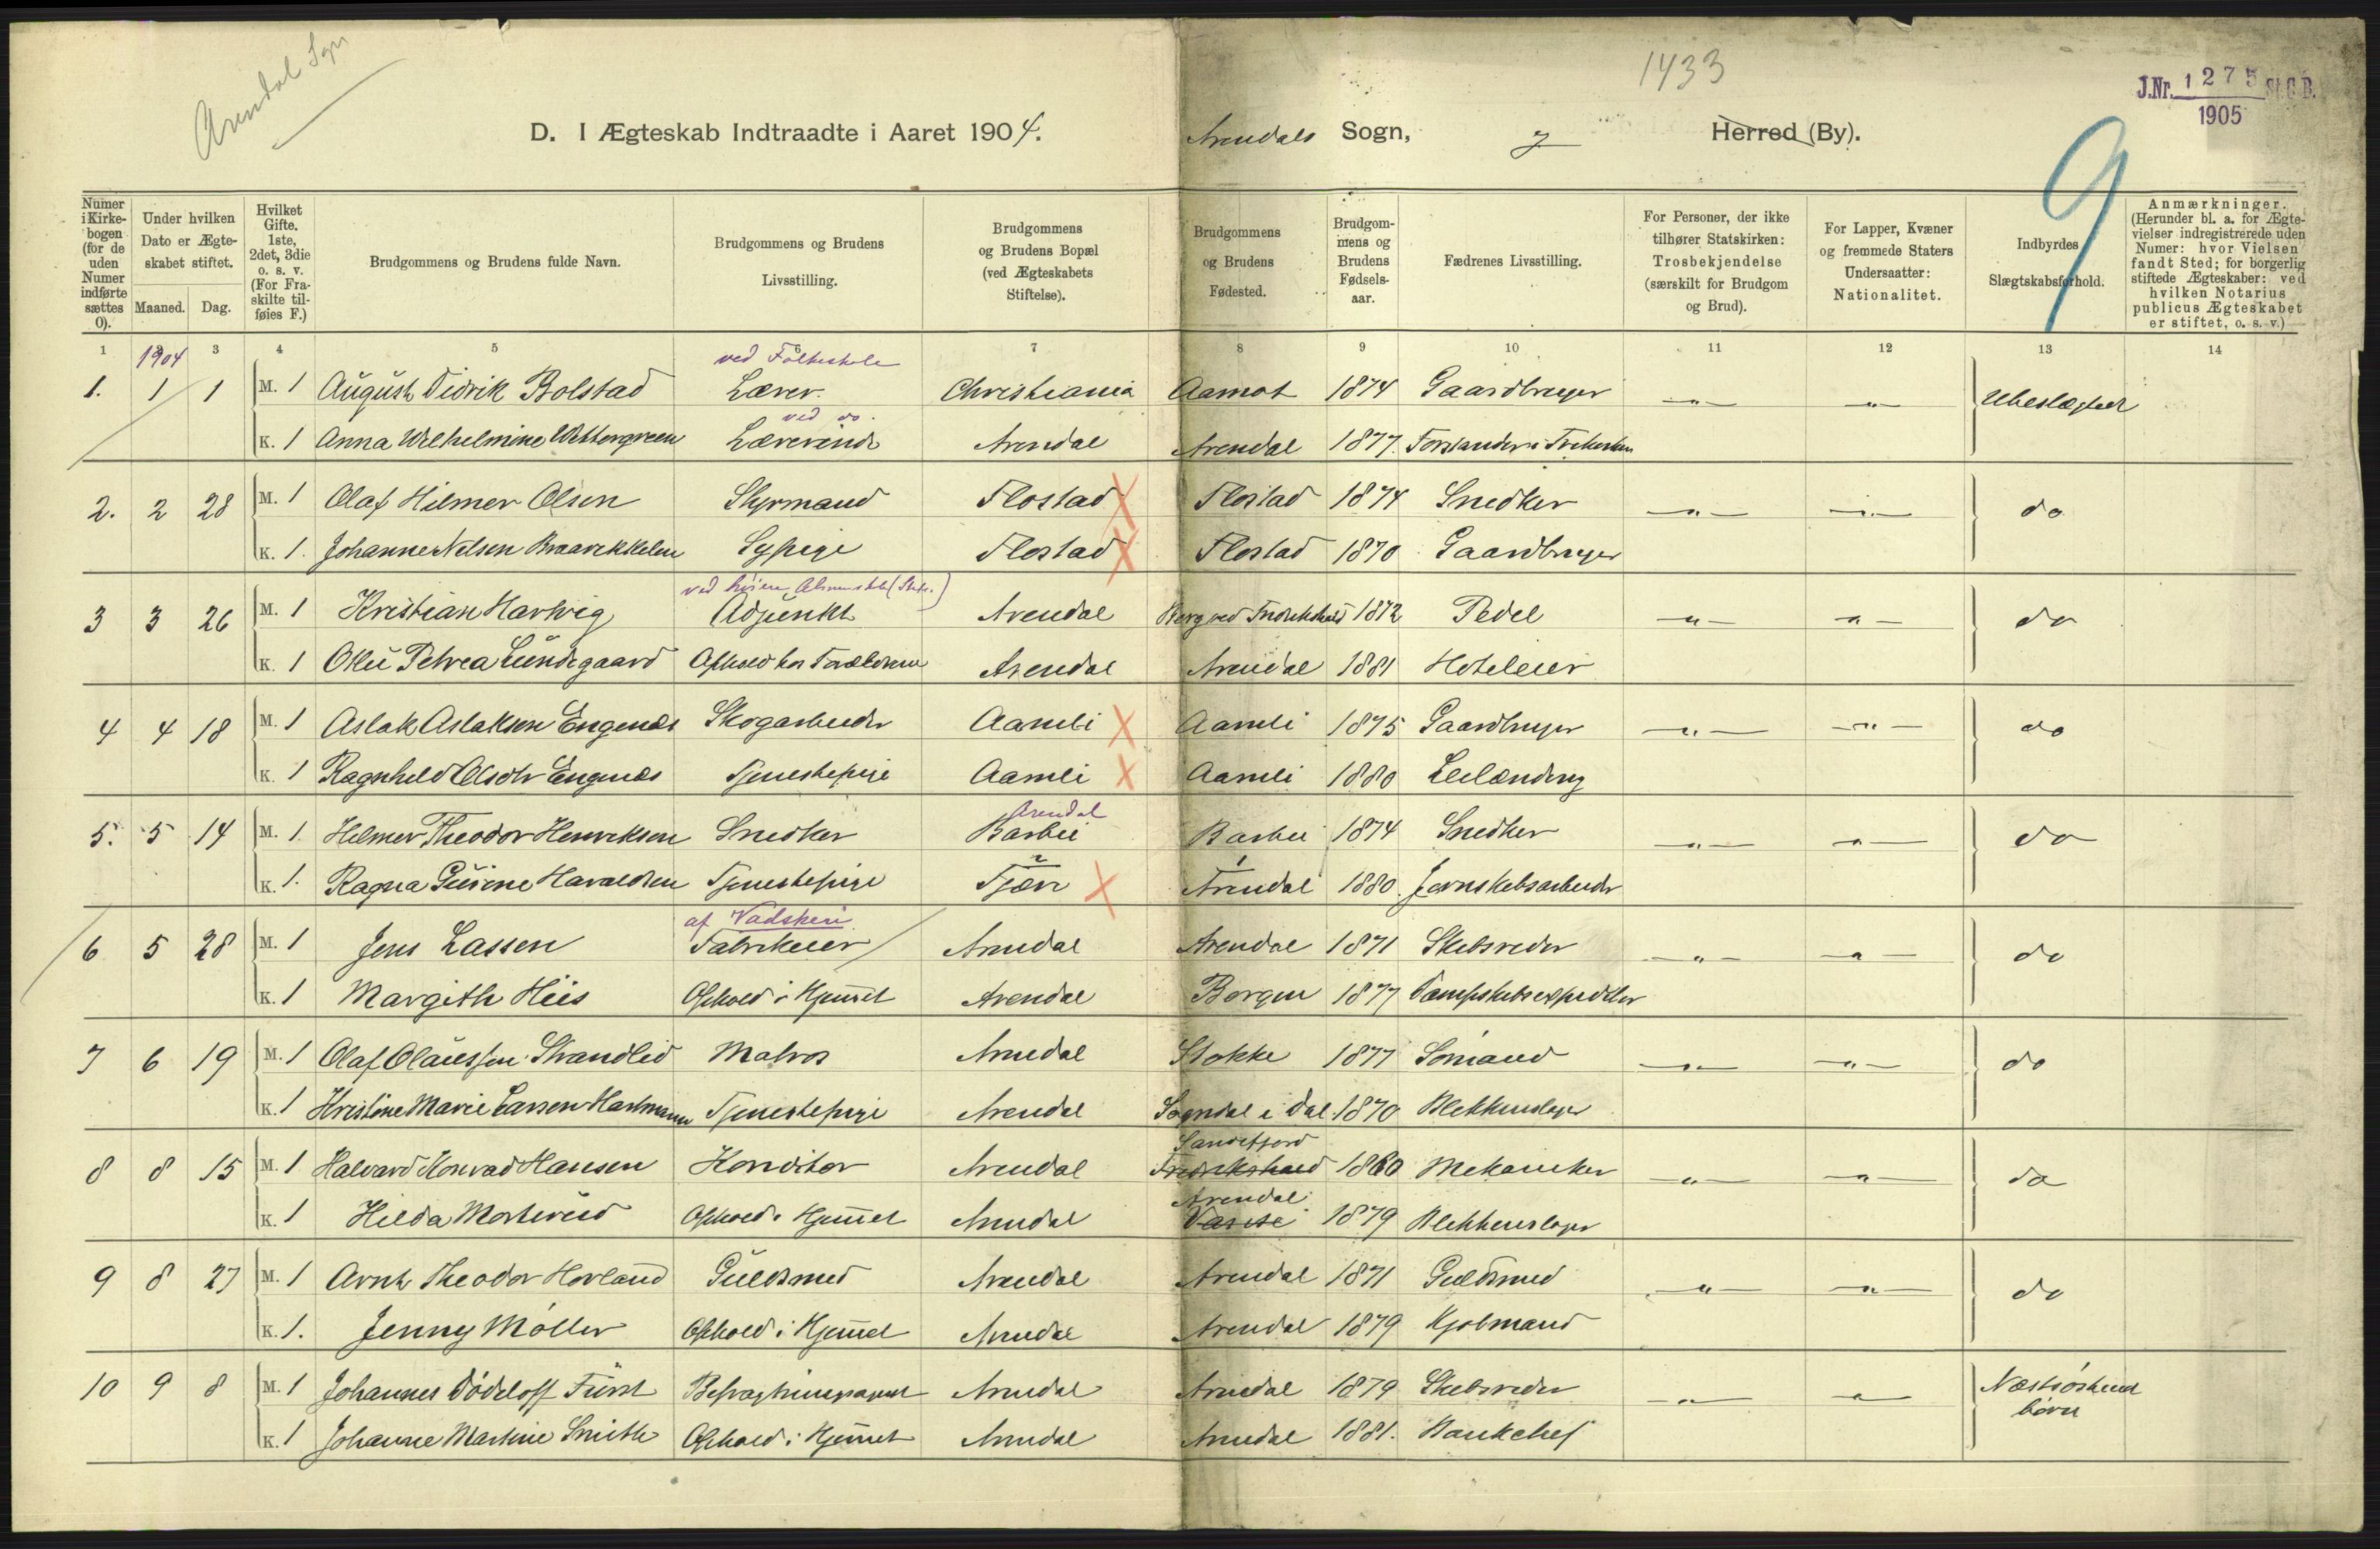 Arendal Sgn
1433
J.Nr. 1275 St.C.B.
1905
9
D. I Ægteskab Indtraadte i Aaret 1904. Arendals Sogn, Herred (By).
Numer i Kirkebogen (for de uden Numer indførte sættes 0).
Under hvilken Dato er Ægteskabet stiftet.
Maaned. Dag.
Hvilket Gifte. 1ste, 2det, 3die o. s. v. (For Fraskilte tilføies F.)
Brudgommens og Brudens fulde Navn.
Brudgommens og Brudens Livsstilling.
Brudgommens og Brudens Bopæl (ved Ægteskabets Stiftelse).
Brudgommens og Brudens Fødested.
Brudgommens og Brudens Fødselsaar.
Fædrenes Livsstilling.
For Personer, der ikke tilhører Statskirken: Trosbekjendelse (særskilt for Brudgom og Brud).
For Lapper, Kvæner og fremmede Staters Undersaatter: Nationalitet.
Indbyrdes Slægtskabsforhold.
Anmærkninger. (Herunder bl. a. for Ægtevielser indregistrerede uden Numer: hvor Vielsen fandt Sted; for borgerlig stiftede Ægteskaber: ved hvilken Notarius publicus Ægteskabet er stiftet, o. s. v.)
1 2 3 4 5 6 7 8 9 10 11 12 13 14
1904 ved Folkeskole
1. 1 1 M. 1 August Didrik Bolstad Lærer Christiania Aamot 1874 Gaardbruger — " — — " — Ubeslægtede
ved do.
K. 1 Anna Wilhelmine Wettergreen Lærerinde Arendal Arendal 1877. Forstander i Frikirken
2. 2 28 M. 1 Olaf Hilmer Olsen Styrmand Flostad X Flostad 1874 Snedker — " — — " — do
K. 1. Johanne Nelsen Sypige Flostad X Flostad 1870 Gaardbruger
ved høiere Almenskole
3 3 26 M. 1 Kristian Hartvig Adjunkt Arendal Berg ved Fredrikshald 1872 Pedel — " — — " — do
K. 1 Petrea Lundegaard Ophold hos Forældrene Arendal Arendal 1881 Hoteleier
4 4 18 M. 1 Aslak Aslaksen Engenes Skogarbeider Aamli X Aamli 1875 Gaardbruger — " — — " — do
K. 1 Ragnhild Olsdtr Engenes Tjenestepige Aamli X Aamli 1880 Leilænding
Arendal
5. 5 14 M. 1. Helmer Theodor Henriksen Snedker Barbu Barbu 1874 Snedker — " — — " — do
K. 1. Ragna Gurine Haraldsen Tjenestepige Tjæn X Arendal 1880 Jernskibsarbeider
af Vadskeri
6 5 28 M. 1 Jens Lassen Fabrikeier Arendal Arendal 1871 Skibsreder — " — — " — do
K. 1 Margithe Hiis Ophold i Hjemmet Arendal Bergen 1877 Dampskibsexpeditør
7 6 19 M. 1 Olaf Olaussen Strandlid Matros Arendal Stokke 1877 Sømand — " — — " — do
K. 1 Kristine Marie Larsen Hartmann Tjenestepige Arendal Sogndal i Dal. 1870 Blikkenslager
Sandefjord
8 8 15 M. 1 Halvard Konrad Hansen Konditor Arendal Fredrikshald 1880 Mekaniker — " — — " — do
Arendal
K. 1 Hilda Morterud Ophold i Hjemmet Arendal 1879 Blikkenslager
9 8 27 M. 1 Arnt Theodor Hovland Guldsmed Arendal Arendal 1871 Guldsmed — " — — " — do
K. 1. Jenny Møller Ophold i Hjemmet Arendal Arendal 1879 Kjøbmand
10 9 8 M. 1 Johannes Dødeloff Fürst Befragtningsagent Arendal Arendal 1879 Skibsreder — " — — " — Næstsøskend
børn
K. 1 Johanne Martine Smith Ophold i Hjemmet Arendal Arendal 1881. Bankchef